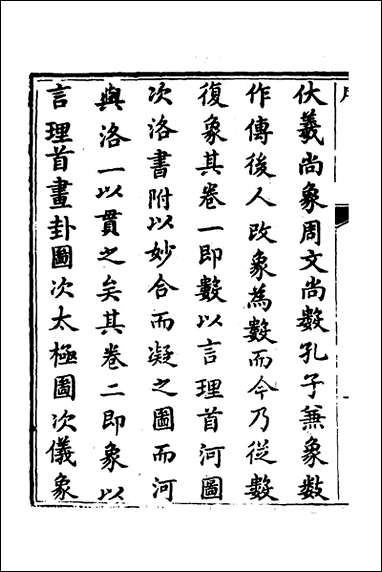 伏羲尚象周文尚數孔子兼象數
作傳後人改象為數而今乃從數
復象其卷一即數以言理首河圖
次洛書附以妙合而凝之圖而河
與洛一以貫之矣其卷二即象以
言理首畫卦圖次太極圖次儀象